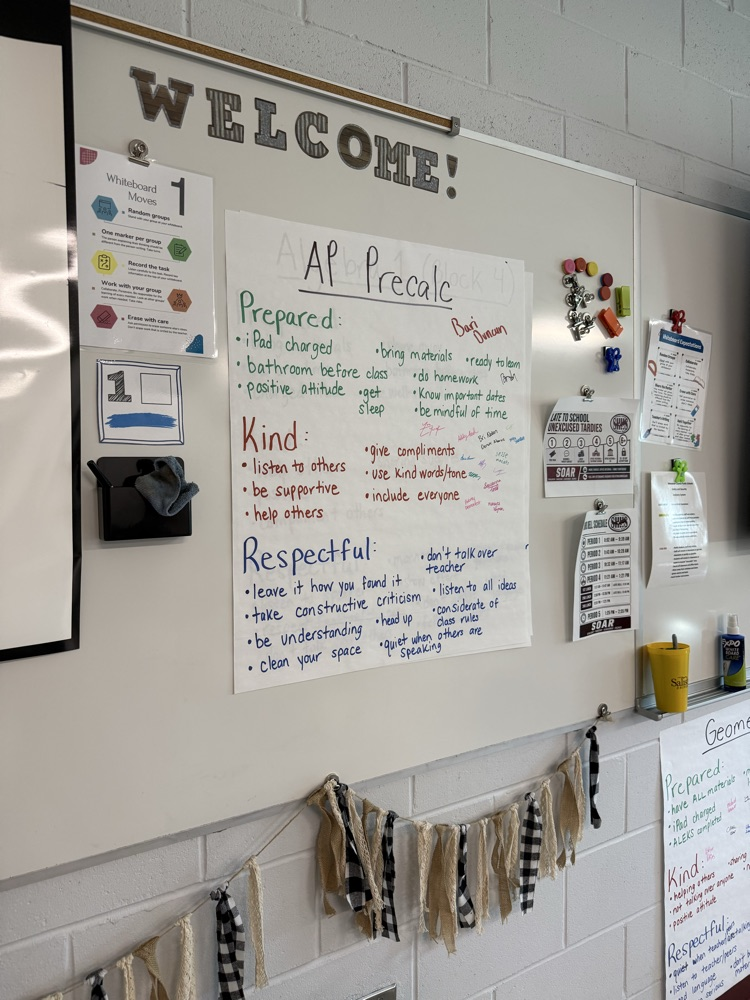 WELCOME!
Whiteboard
Moves
1
Random groups
One marker per group
Record the task
Work with your group
Erase with care
1
AP Precalc
Prepared:
• iPad charged
• bathroom before class
• positive attitude
• get
sleep
• bring materials
• ready to learn
• do homework
• Know important dates
• be mindful of time
Duncan
Kind:
• listen to others
• be supportive
• help others
• give compliments
• use kind words/tone
• include everyone
Respectful:
• leave it how you found it
• take constructive criticism
• be understanding
• clean your space
• head up
• quiet when others are
speaking
• don't talk over
teacher
• listen to all ideas
• considerate of
class rules
LATE TO SCHOOL
UNEXCUSED TARDIES
1 2 3 4 5
SOAR
BELL SCHEDULE
PERIOD 1
PERIOD 2
PERIOD 3
PERIOD 4
PERIOD 5
SOAR
Whiteboard Expectations
EXPO
WHITE BOARD
CARE
Geome
Prepared:
• have ALL materials
• iPad charged
• ALEKS completed
Kind:
• helping others
• not talking over anyone
• positive attitude
• sharing
Respectful:
• quiet when teacher
• listen to teacher/peers
• language